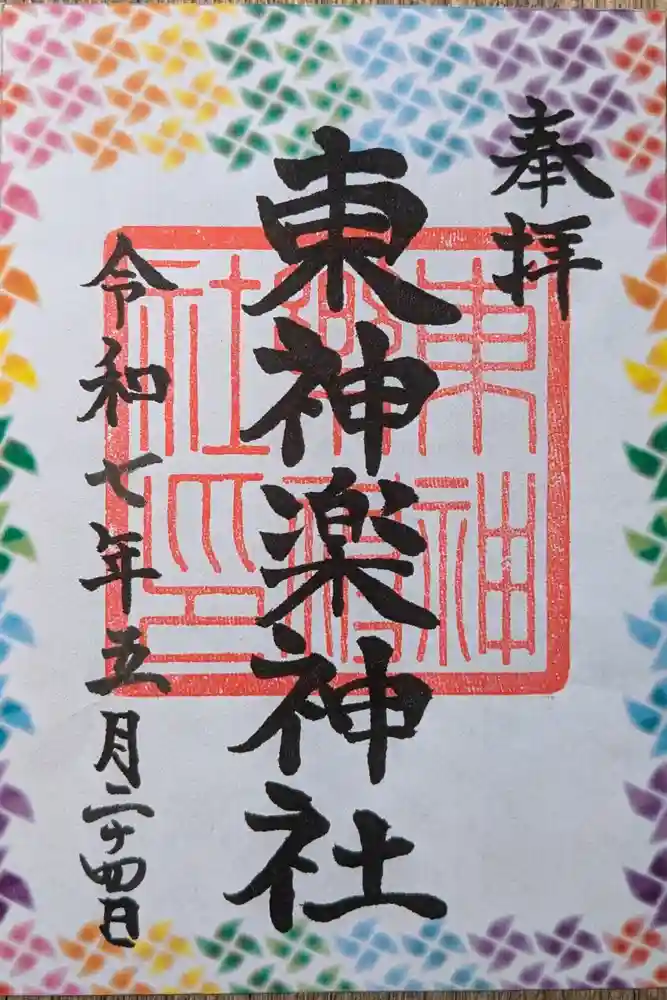 奉拝
東神楽神社
令和七年五月二十四日
東神
楽神
社印